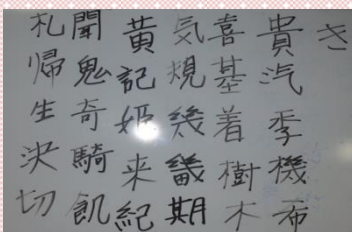 き
貴汽季機布
喜基着樹木
気規幾畿期
黄記姫来紀
聞鬼奇騎飢
札帰生決切